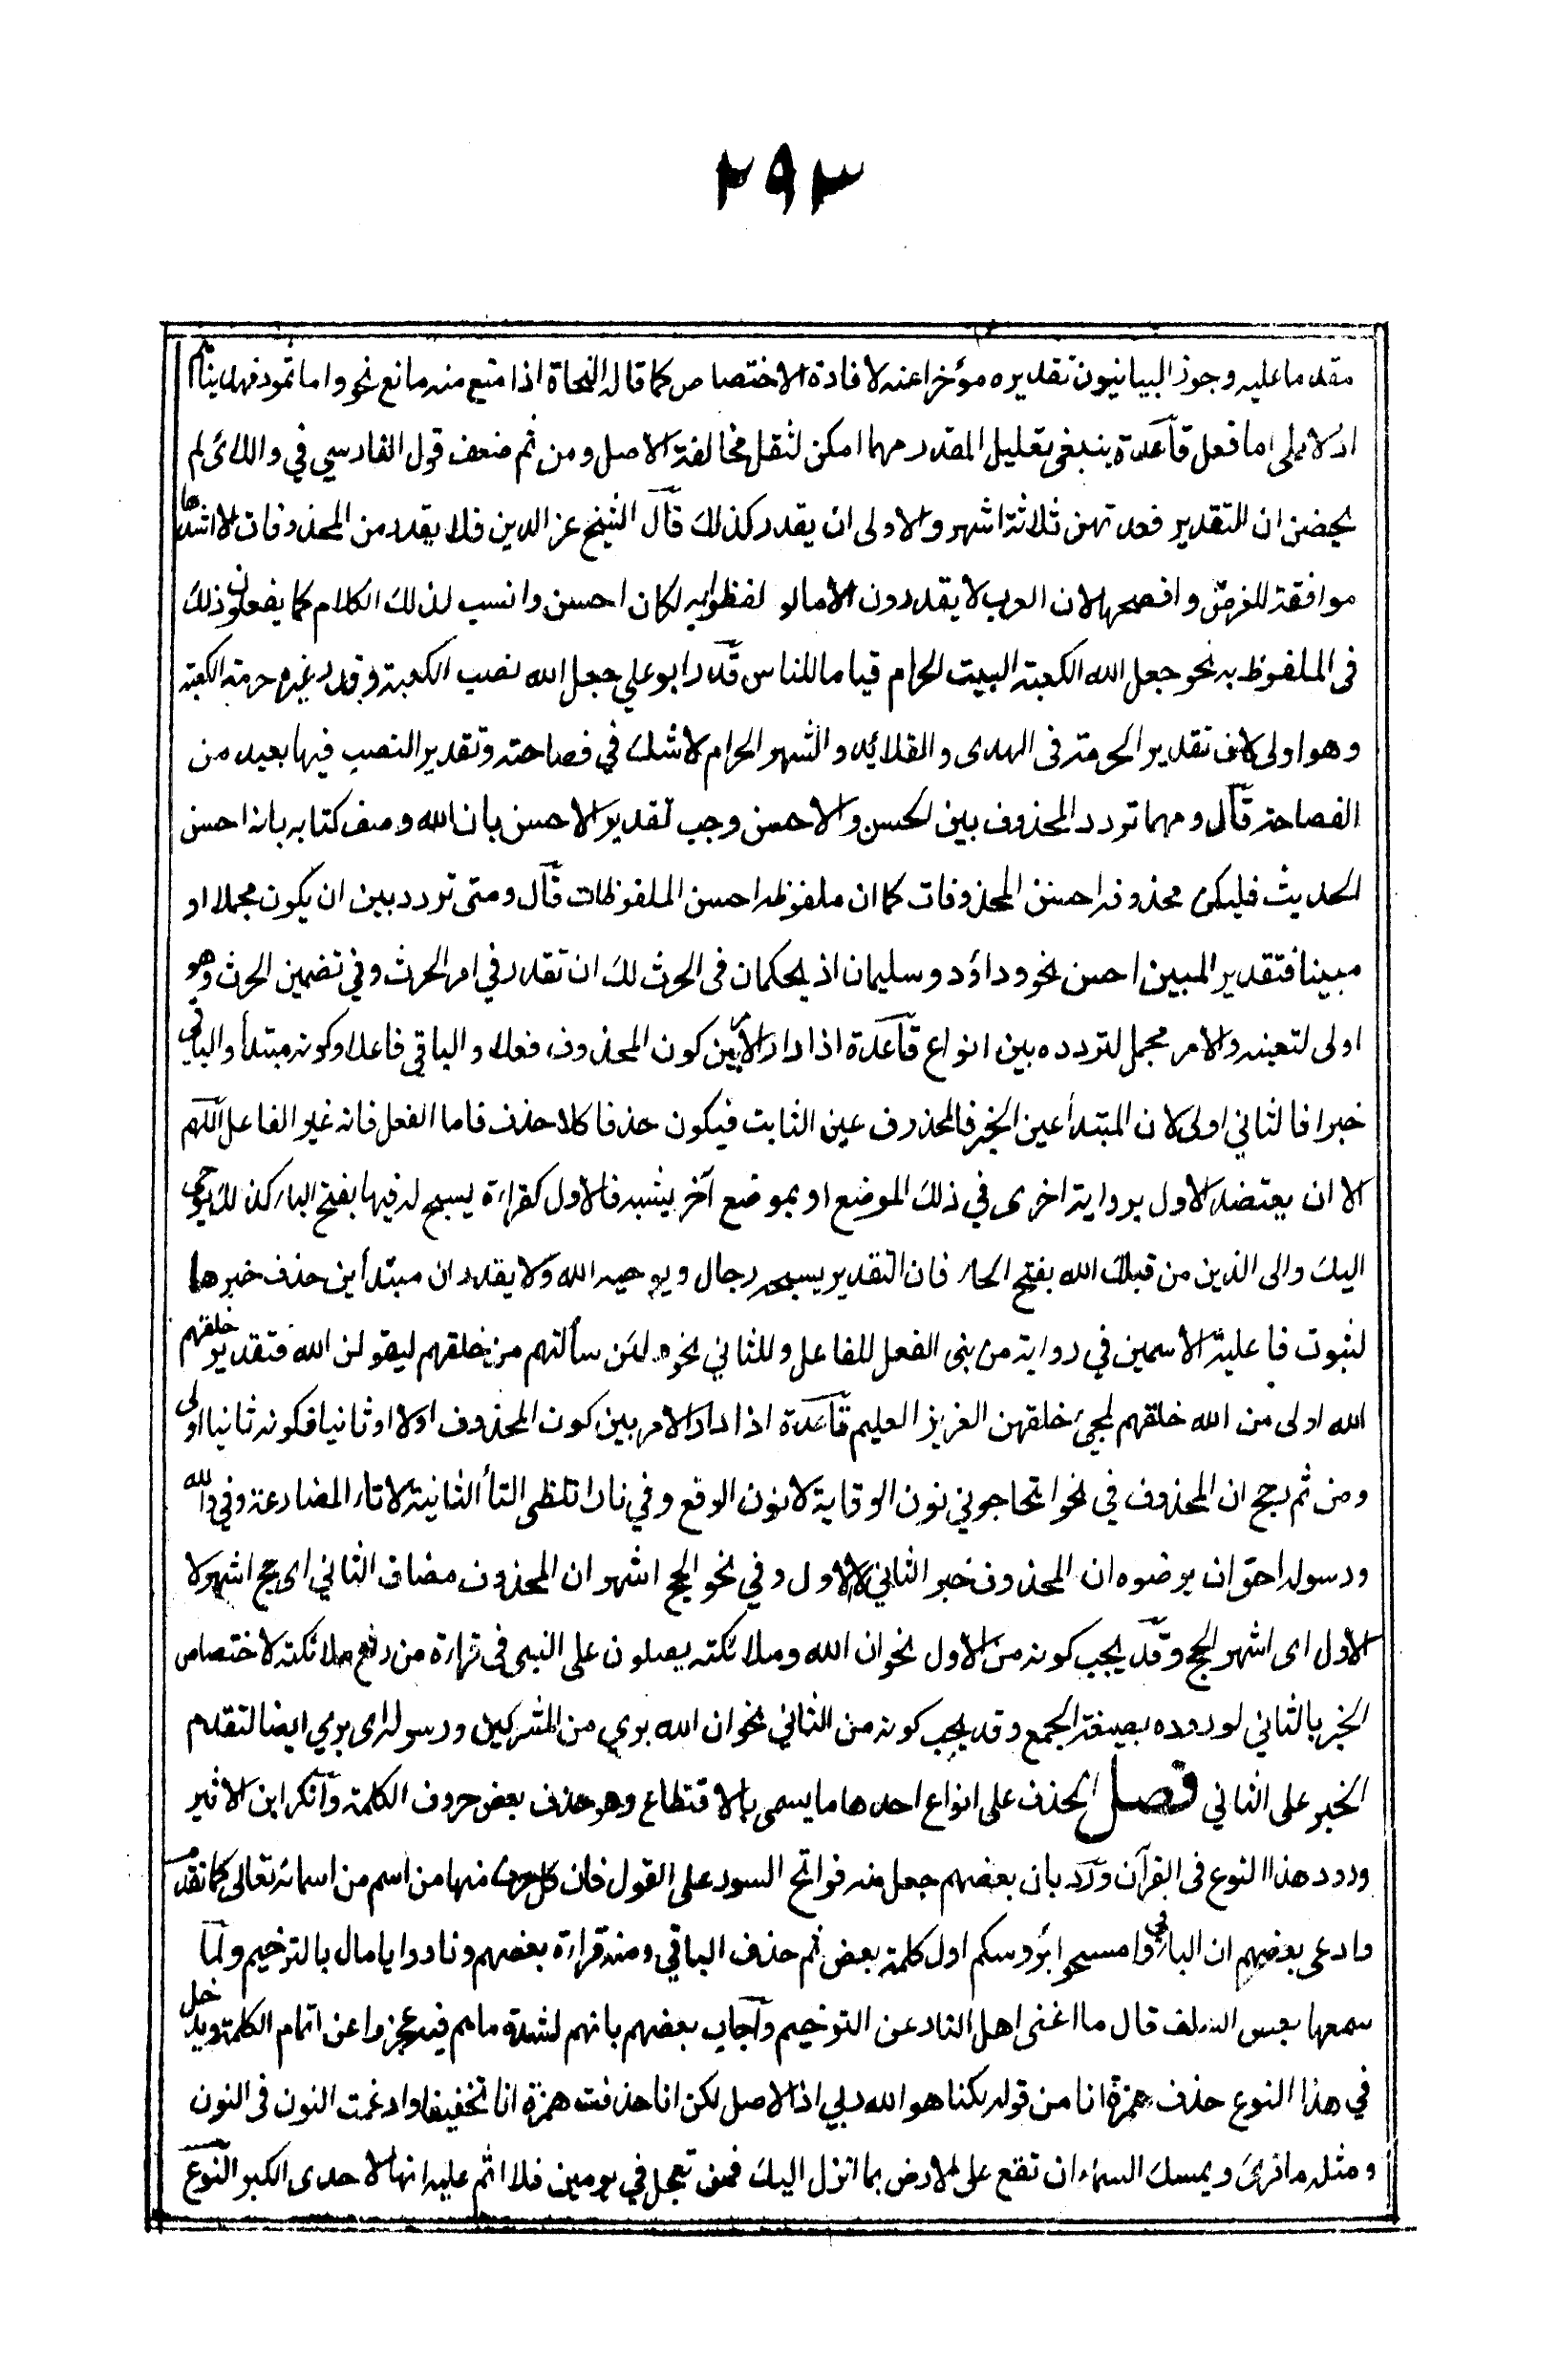 ٢٩٣
مقدما عليه وجوز البيانيون تقديره مؤخرا عنه لافادة الاختصاص كما قاله النحاة اذا منع منه مانع نحو واما ثمود فهديناهم
اذ لا يلى اما فعل قاعدة ينبغى تقليل المقدر مهما امكن لتقل مخالفة الاصل ومن ثم ضعف قول الفارسي في واللائى لم
يحضن ان التقدير فعدتهن ثلاثة اشهر والاولى ان يقدر كذلك قال الشيخ عز الدين فلا يقدر من المحذوفات الا اشدها
موافقة للغرض وافصحها لان العرب لا يقدرون الا ما لو لفظوا به لكان احسن وانسب لذلك الكلام كما يفعلون ذلك
فى الملفوظ به نحو جعل الله الكعبة البيت الحرام قياما للناس قدر ابو علي جعل الله نصب الكعبة وقدر غيره حرمة الكعبة
وهو اولى لان تقدير الحرمة فى الهدى والقلائد والشهر الحرام لا شك في فصاحته وتقدير النصب فيها بعيد من
الفصاحة قال ومهما تردد المحذوف بين الحسن والاحسن وجب تقدير الاحسن بان الله وصف كتابه بانه احسن
الحديث فليكن محذوفه احسن المحذوفات كما ان ملفوظه احسن الملفوظات قال ومتى تردد بين ان يكون مجملا او
مبينا فتقدير المبين احسن نحو وداؤد وسليمان اذ يحكمان فى الحرث لك ان تقدر في امر الحرث وفي تضمين الحرث وهو
اولى لتعينه والامر مجمل لتردده بين انواع قاعدة اذا دار الامر بين كون المحذوف فعلا والباقي فاعلا وكونه مبتدأ والباقي
خبرا فالثاني اولى لان المبتدأ عين الخبر فالمحذوف عين الثابت فيكون حذفا كلا حذف فاما الفعل فانه غير الفاعل اللهم
الا ان يعتضد الاول برواية اخرى في ذلك الموضع او بموضع آخر يشبه فالاول كقراءة يسبح له فيها بفتح الباء كذلك يوحى
اليك والى الذين من قبلك الله بفتح الحاء فان التقدير يسبحه رجال ويوحيه الله ولا يقدران مبتدأين حذف خبرها
لثبوت فاعلية الاسمين في رواية من بنى الفعل للفاعل وللثاني نحو ولئن سألتهم من خلقهم ليقولن الله فتقدير خلقهم
الله اولى من الله خلقهم لمجئ خلقهن العزيز العليم قاعدة اذا دار الامر بين كون المحذوف اولا او ثانيا فكونه ثانيا اولى
ومن ثم رجح ان المحذوف في نحو اتحاجوني نون الوقاية لا نون الرفع وفي نارا تلظى التأ الثانية لا تاء المضارعة وفي والله
ورسوله احق ان يرضوه ان المحذوف خبر الثاني لا الاول وفي نحو الحج اشهر ان المحذوف مضاف الثاني اى حج اشهر لا
الاول اى اشهر الحج وقد يجب كونه من الاول نحو ان الله وملائكته يصلون على النبى فى قراءة من رفع ملائكته لاختصاص
الخبر بالثاني لوروده بصيغة الجمع وقد يجب كونه من الثاني نحو ان الله بري من المشركين ورسوله اى بري ايضا لتقدم
الخبر على الثاني فصل الحذف على انواع احدها ما يسمى بالاقتطاع وهو حذف بعض حروف الكلمة وانكر ابن الاثير
ورود هذا النوع فى القرآن ورد بان بعضهم جعل منه فواتح السور على القول فان كل حرف منها من اسم من اسمائه تعالى كما تقدم
وادعى بعضهم ان الباء في وامسحوا برؤسكم اول كلمة بعض ثم حذف الباقي ومنه قراءة بعضهم ونادوا يا مال بالترخيم ولما
سمعها بعض السلف قال ما اغنى اهل النار عن الترخيم واجاب بعضهم بانهم لشدة ما هم فيه عجزوا عن اتمام الكلمة ويدخل
في هذا النوع حذف همزة انا من قوله لكنا هو الله ربي اذ الاصل لكن انا حذفت همزة انا تخفيفا وادغمت النون فى النون
ومثله ما قرئ ويمسك السماء ان تقع على لارض بما انزل اليك فمن تعجل في يومين فلا اثم عليه انها لاحدى الكبر النوع